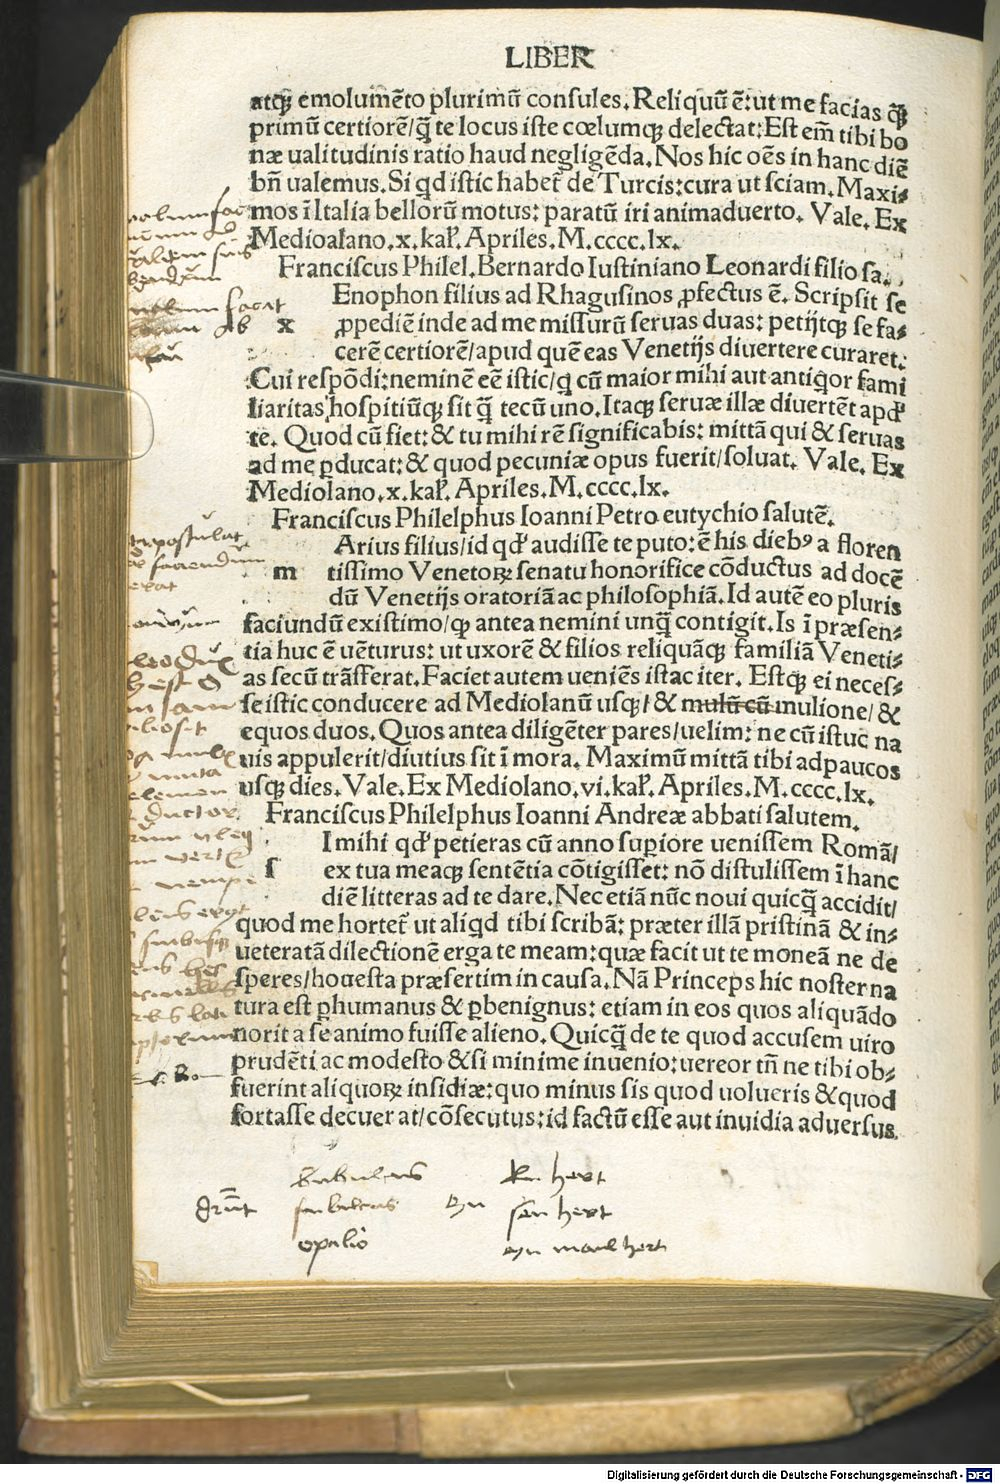 LIBER
atqꝫ emolumēto plurimū consules. Reliquū ē: ut me facias q̄ꝫ
primū certiorē/ q̄ te locus iste cœlumqꝫ delectat: Est eīm tibi bo
næ ualitudinis ratio haud negligēda. Nos hic oēs in hanc diē
bn̄ ualemus. Si qd istic habet̄ de Turcis: cura ut sciam. Maxi-
mos ī Italia bellorū motus: paratū iri animaduerto. Vale. Ex
Medioalano. x. kal̓. Apriles. M. cccc. lx.
Franciscus Philel. Bernardo Iustiniano Leonardi filio sa.
Enophon filius ad Rhagusinos ꝓfectus ē. Scripsit se
x ꝓpediē inde ad me missurū seruas duas: petijtqꝫ se fa-
cerē certiorē/ apud quē eas Venetijs diuertere curaret.
Cui respōdi: neminē eē istic/ q cū maior mihi aut antiqor fami
liaritas hospitiūqꝫ sit q̄ tecū uno. Itaqꝫ seruæ illæ diuertēt apd̓
te. Quod cū fiet: & tu mihi rē significabis: mittā qui & seruas
ad me ꝑducat: & quod pecuniæ opus fuerit/ soluat. Vale. Ex
Mediolano. x. kal̓. Apriles. M. cccc. lx.
Franciscus Philelphus Ioanni Petro eutychio salutē.
Arius filius/ id qd̓ audisse te puto: ē his dieb⁹ a floren
m tissimo Venetoꝝ senatu honorifice cōductus ad docē
dū Venetijs oratoriā ac philosophiā. Id autē eo pluris
faciundū existimo/ qꝫ antea nemini unq̄ contigit. Is ī præsen-
tia huc ē uēturus: ut uxorē & filios reliquāqꝫ familiā Veneti-
as secū trāsferat. Faciet autem ueniēs istac iter. Estqꝫ ei neces-
se istic conducere ad Mediolanū usqꝫ/ & mulū cū mulione/ &
equos duos. Quos antea diligēter pares/ uelim: ne cū istuc na
uis appulerit/ diutius sit ī mora. Maximū mittā tibi ad paucos
usqꝫ dies. Vale. Ex Mediolano. vi. kal̓. Apriles. M. cccc. lx.
Franciscus Philelphus Ioanni Andreæ abbati salutem.
I mihi qd̓ petieras cū anno supiore uenissem Romā/
s ex tua meaqꝫ sentētia cōtigisset: nō distulissem ī hanc
diē litteras ad te dare. Nec etiā nūc noui quicq̄ accidit/
quod me hortet̄ ut aliqd tibi scribā: præter illā pristinā & in-
ueteratā dilectionē erga te meam: quæ facit ut te moneā ne de
speres/ honesta præsertim in causa. Nā Princeps hic noster na
tura est ꝑhumanus & ꝑbenignus: etiam in eos quos aliquādo
norit a se animo fuisse alieno. Quicq̄ de te quod accusem uiro
prudēti ac modesto & si minime inuenio: uereor tn̄ ne tibi ob-
fuerint aliquoꝝ insidiæ: quo minus sis quod uolueris & quod
fortasse decuerat/ cōsecutus: id factū esse aut inuidia aduersus
bubulcus
subulcus
opilio
eyn
ku hert
sau hert
Digitalisierung gefördert durch die Deutsche Forschungsgemeinschaft - DFG